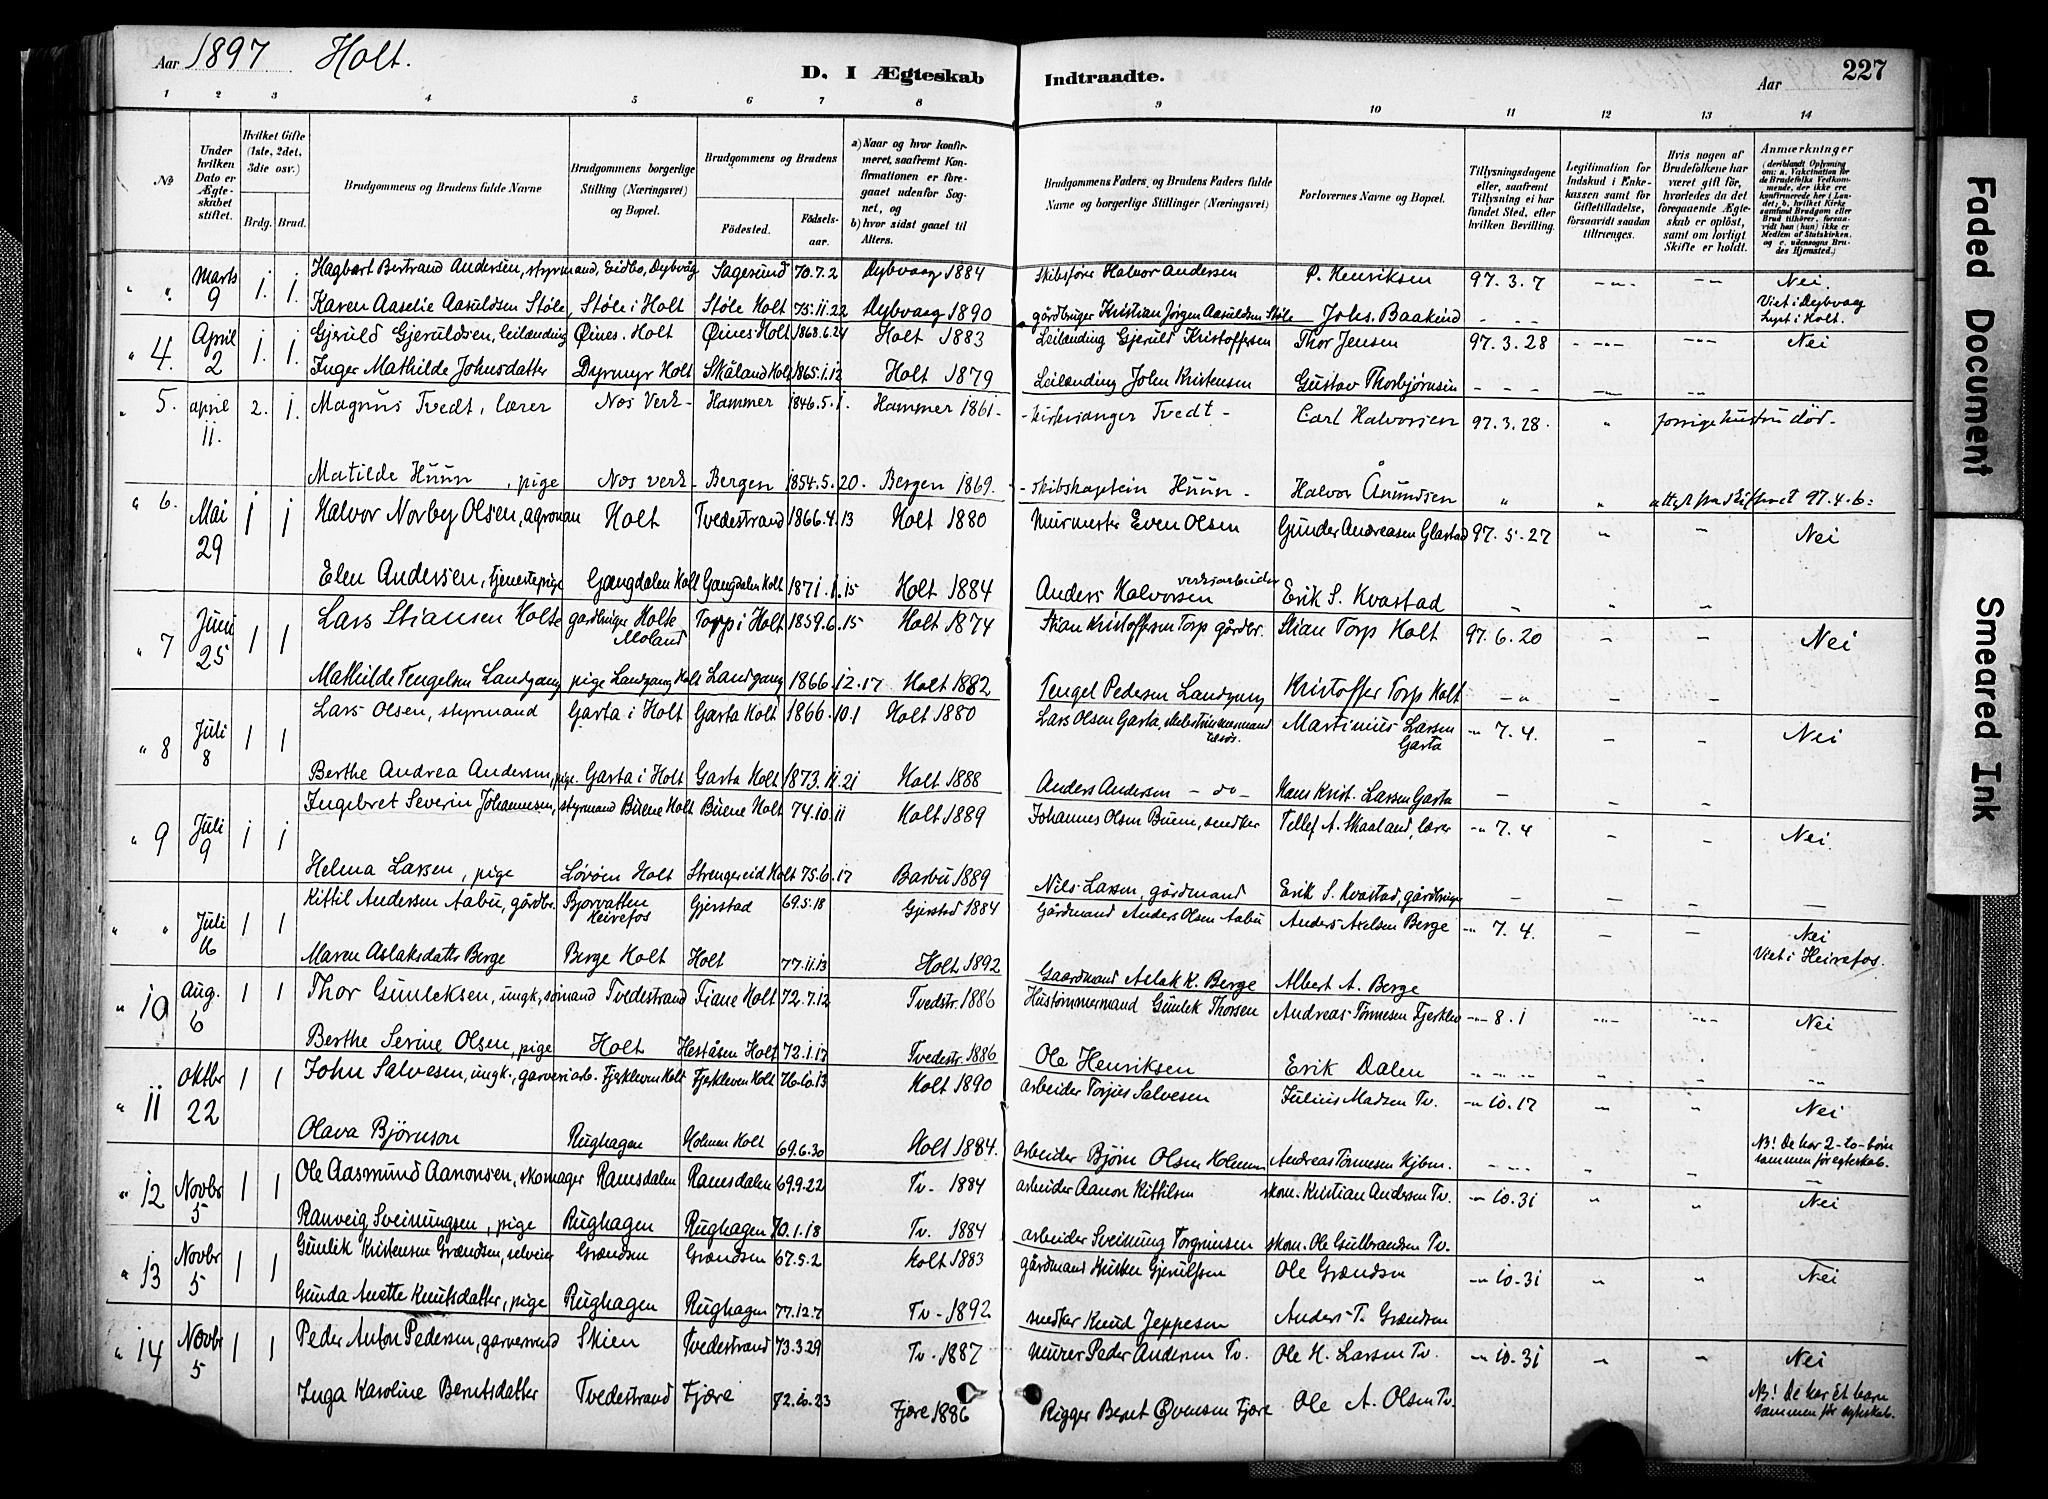 Aar 1897 Holt.
D. I Ægteskab Indtraadte.
Aar
227
1 2 3 4 5 6 7 8 9 10 11 12 13 14
No
Under hvilken Dato er Ægteskabet stiftet.
Hvilket Gifte (1ste, 2det, 3die osv.)
Brdg. Brud.
Brudgommens og Brudens fulde Navne
Brudgommens borgerlige Stilling (Næringsvei) og Bopæl.
Brudgommens og Brudens
Födested. Födselsaar.
a) Naar og hvor konfirmeret, saafremt Konfirmationen er foregaaet udenfor Sognet, og
b) hvor sidst gaaet til Alters.
Brudgommens Faders, og Brudens Faders fulde Navne og borgerlige Stillinger (Næringsvei)
Forlovernes Navne og Bopæl.
Tillysningsdagene eller, saafremt Tillysning ei har fundet Sted, efter hvilken Bevilling.
Legitimation for Indskud i Enkekassen samt for Giftetilladelse, forsaavidt saadan tiltrænges.
Hvis nogen af Brudefolkene har været gift för, hvorledes da det foregaaende Ægteskab er oplöst, samt om lovligt Skifte er holdt.
Anmærkninger (deriblandt Oplysning om: a. Vakcination for de Brudefolks Vedkommende, der ikke ere konfirmerede her i Landet; b. hvilket Kirkesamfund Brudgom eller Brud tilhörer, forsaavidt han (hun) ikke er Medlem af Statskirken, og c. udensogns Brudes Hjemsted.)
" " Marts 9 1. 1. Hagbart Bertrand Andersen, styrmand, Eidbo, Dybvåg Sagesund 70.7.2 Dybvaag 1884 Skibsförer Halvor Andersen P. Henriksen 97.3.7 Nei.
Karen Aaselie Aasuldsen Støle, Støle i Holt Støle Holt 75.11.22 Dybvaag 1890 gårdbruger Kristian Jörgen Aasuldsen Støle Johs. Baakind Viet i Dybvaag Lyst i Holt.
" 4. April 2 1. 1. Gjeruld Gjeruldsen, Leilænding Øines. Holt Øines Holt 1868.6.24 Holt 1883 Leilænding Gjeruld Kristoffersen Thor Jensen 97.3.28 Nei
Inger Mathilde Johnsdatter Dyrmyr Holt Skåland Holt 1865.1.12 Holt 1879 Leilænding John Kristensen Gustav Thorbjørnsen
" 5. april 11. 2. 1. Magnus Tvedt, lærer Nes Verk Hammer 1846.5.1. Hammer 1861 kirkesanger Tvedt Carl Halvorsen 97.3.28 " forrige hustru död.
Matilde Huun, pige Nes verk Bergen 1854.5.20. Bergen 1869. skibskaptein Huun Halvor Ånundsen " " attest fra skifteret 97.4.6:
" 6. Mai 29 1 1 Halvor Norby Olsen, agronom Holt Tvedestrand 1866.4.13 Holt 1880 Murmester Even Olsen Gunder Andreasen Glastad 97.5.27 Nei
Elen Andersen, tjenestepige Gangdalen Holt Gangdalen Holt 1871.1.15 Holt 1884 Anders Halvorsen verksarbeider Erik S. Kvastad
" 7 Juni 25 1 1 Lars Stiansen Holte gardbruger Holte Moland Torp i Holt 1859.6.15 Holt 1874 Stian Kristoffersen Torp gårdbr. Stian Torp Holt 97.6.20 Nei
Mathilde Tengelsen Landgang pige Landgang Holt Landgang 1866.12.17 Holt 1882 Tengel Pedersen Landgang Kristoffer Torp Holt
" 8 Juli 8 1 1 Lars Olsen, styrmand Garta i Holt Garta Holt 1866.10.1 Holt 1880 Lars Olsen Garta, tilsös. Martinius Larsen Garta 7.4. Nei
Berthe Andrea Andersen, pige. Garta i Holt Garta Holt 1873.11.21 Holt 1888 Anders Andersen - do - Hans Krist. Larsen Garta
" 9 Juli 9 1 1 Ingebret Severin Johannesen, styrmand Buene Holt Buene Holt 74.10.11 Holt 1889 Johannes Olsen Buene, snedker Tellef A. Skaaland, lærer 7.4 Nei.
Helena Larsen, pige Løvåen Holt Strengereid Holt 75.6.17 Barbu 1889 Nils Larsen, gårdmand Erik S. Kvastad, gårdbruger
" " Juli 16 1 1 Kittil Andersen Aabu, gårdbr. Bjorvatten Heirefos Gjerstad 69.5.18 Gjerstad 1884 Gårdmand Anders Olsen Aabu Anders Axelsen Berge 7.4. Nei
Maren Aslaksdatter Berge Berge Holt Holt 77.11.13 Holt 1892 Gaardmand Aslak K. Berge Albert A. Berge Viet i Heirefos.
" 10 Aug. 6 1 1 Thor Gunleksen, ungk, sömand Tvedestrand Fiane Holt 72.7.12 Tvedstr. 1886 Hustömmermand Gunlek Thorsen Andreas Tönnesen Fjerkleiv 8.1 Nei
Berthe Serine Olsen, pige Holt Heståsen Holt 72.1.17 Tvedestr. 1886 Ole Henriksen Erik Dalen
" 11 Oktbr 22 1 1 John Salvesen, ungk., garveriarb. Fjerkleven Holt Fjerkleven Holt 76.10.13 Holt 1890 arbeider Torjus Salvesen Julius Madsen Tv. 10.17 Nei
Olava Bjørnson Rughagen Holmen Holt 69.6.30 Holt 1884. arbeider Bjørn Olsen Holmen Andreas Tönnesen Kjbm. NB! De har 2-to-børn sammen för egteskab.
" 12 Novbr 5 1 1 Ole Aasmund Aanonsen, skomager Ramsdalen Ramsdalen 69.9.22 Tv. 1884 arbeider Aanon Kittilsen skom. Kristian Andersen Tv. 10.31 Nei
Ranveig Sveinungsen, pige Rughagen Rughagen 70.1.18 Tv. 1884 arbeider Sveinung Torgrimsen skom. Ole Gulbrandsen Tv.
" 13 Novbr 5 1 1 Gunlik Kristensen Grændsen, selveier Grændsen Grændsen 67.5.2 Holt 1883 gårdmand Kristen Gjerulfsen Ole Grændsen 10.31 Nei
Gunda Anette Knutsdatter, pige Rughagen Rughagen 77.12.7 Tv. 1892 snedker Knud Jeppesen Anders T. Grændsen
" 14 Novbr 5 1 1 Peder Anton Pedersen, garversvend Skien Tvedestrand 73.3.29 Tv. 1887 Murer Peder Andersen Tv. Ole H. Larsen Tv. 10.31 Nei
Inga Karoline Berntsdatter Tvedestrand Fjære 72.10.23 Fjære 1886 Rigger Bernt Evensen Fjære Ole A. Olsen Tv. NB! De har Et barn sammen för egteskab.
Faded Document
Smeared Ink